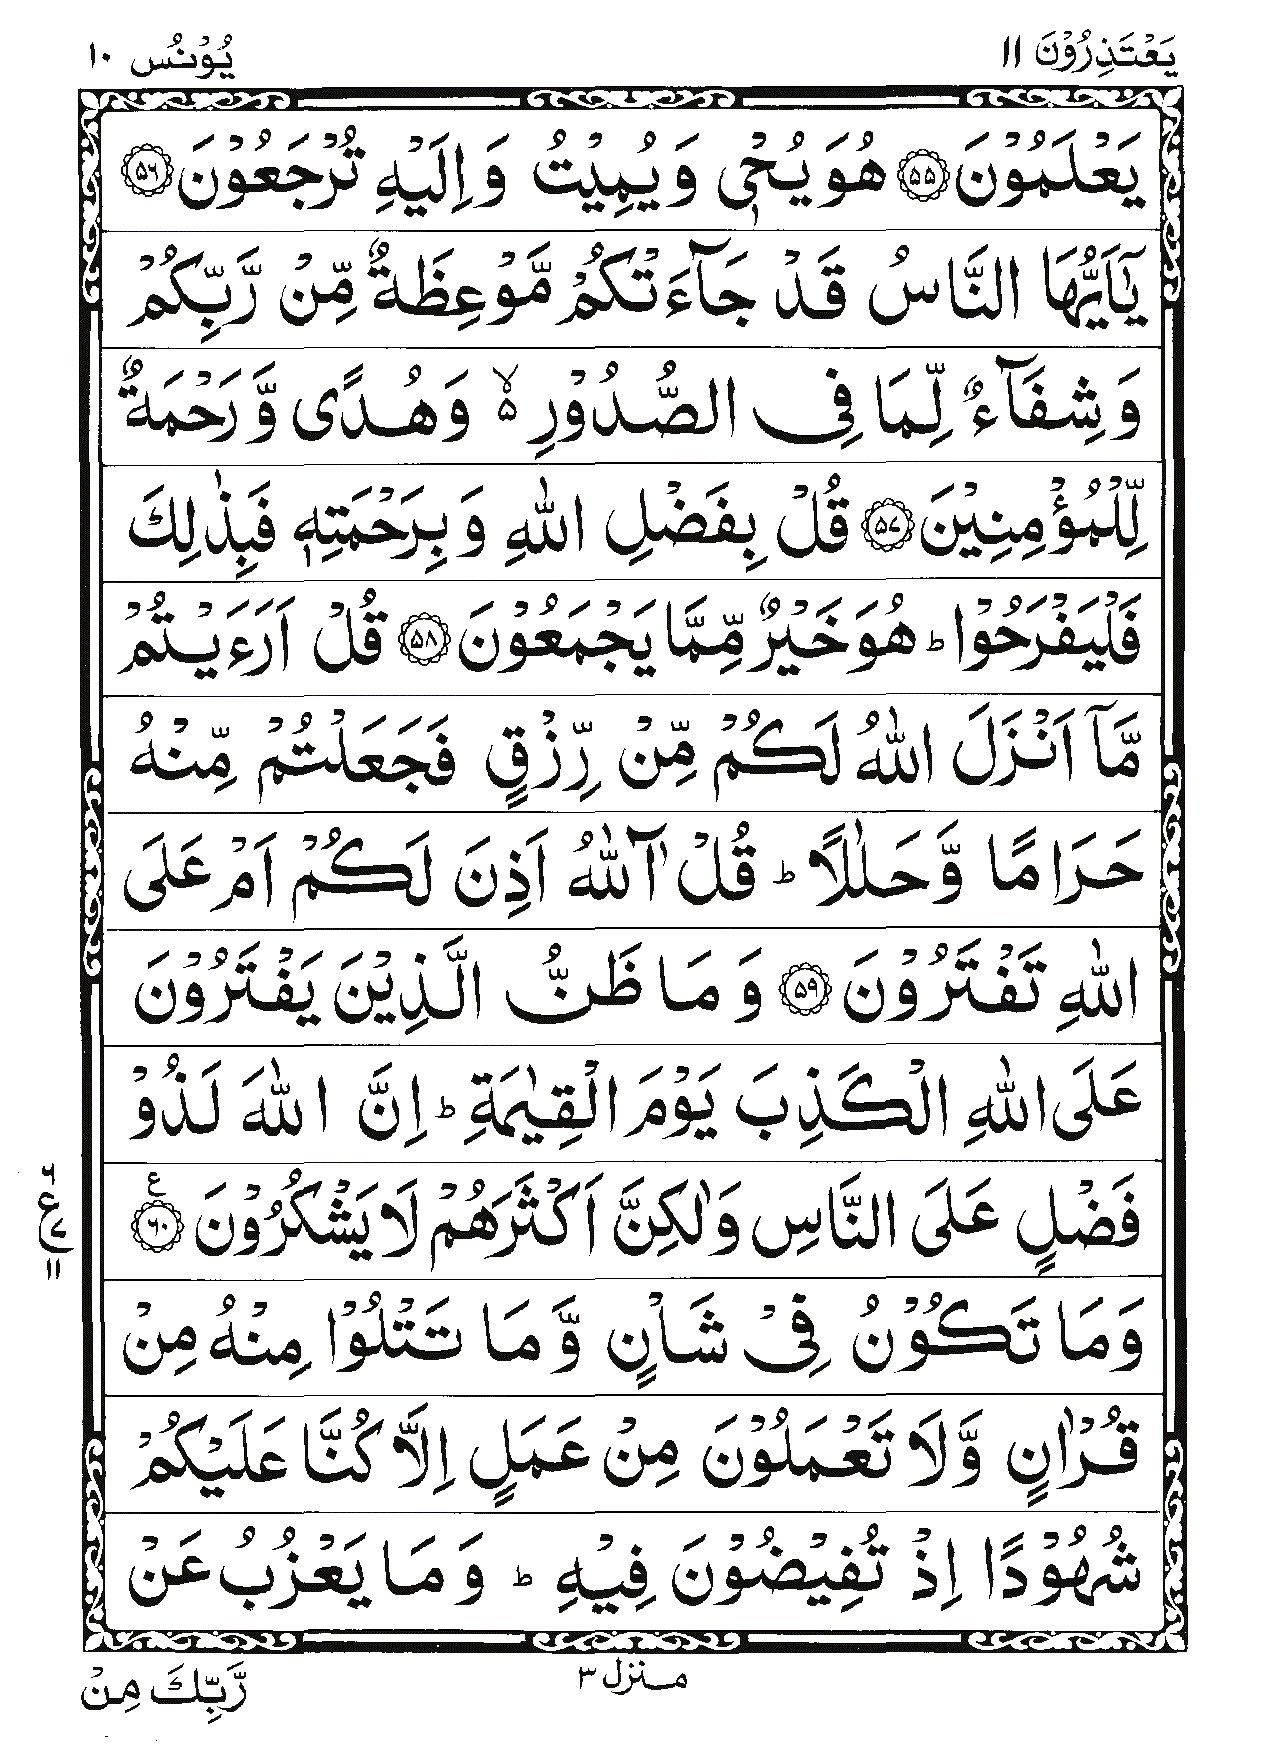 یَعْتَذِرُوْنَ ١١
یُوْنُس ١٠
یَعْلَمُوْنَ ﴿۵۵﴾ هُوَ یُحْیٖ وَ یُمِیْتُ وَ اِلَیْهِ تُرْجَعُوْنَ ﴿۵۶﴾
یٰۤاَیُّهَا النَّاسُ قَدْ جَآءَتْكُمْ مَّوْعِظَةٌ مِّنْ رَّبِّكُمْ
وَ شِفَآءٌ لِّمَا فِی الصُّدُوْرِ ۙ۵ وَ هُدًی وَّ رَحْمَةٌ
لِّلْمُؤْمِنِیْنَ ﴿۵۷﴾ قُلْ بِفَضْلِ اللّٰهِ وَ بِرَحْمَتِهٖ فَبِذٰلِكَ
فَلْیَفْرَحُوْا ؕ هُوَ خَیْرٌ مِّمَّا یَجْمَعُوْنَ ﴿۵۸﴾ قُلْ اَرَءَیْتُمْ
مَّاۤ اَنْزَلَ اللّٰهُ لَكُمْ مِّنْ رِّزْقٍ فَجَعَلْتُمْ مِّنْهُ
حَرَامًا وَّ حَلٰلًا ؕ قُلْ آٰللّٰهُ اَذِنَ لَكُمْ اَمْ عَلَی
اللّٰهِ تَفْتَرُوْنَ ﴿۵۹﴾ وَ مَا ظَنُّ الَّذِیْنَ یَفْتَرُوْنَ
عَلَی اللّٰهِ الْكَذِبَ یَوْمَ الْقِیٰمَةِ ؕ اِنَّ اللّٰهَ لَذُوْ
فَضْلٍ عَلَی النَّاسِ وَلٰكِنَّ اَكْثَرَهُمْ لَا یَشْكُرُوْنَ ﴿۶۰﴾ ع
۶
ع
٧
١١
وَ مَا تَكُوْنُ فِیْ شَاْنٍ وَّ مَا تَتْلُوْا مِنْهُ مِنْ
قُرْاٰنٍ وَّ لَا تَعْمَلُوْنَ مِنْ عَمَلٍ اِلَّا كُنَّا عَلَیْكُمْ
شُهُوْدًا اِذْ تُفِیْضُوْنَ فِیْهِ ؕ وَ مَا یَعْزُبُ عَنْ
منزل ٣
رَّبِّكَ مِنْ